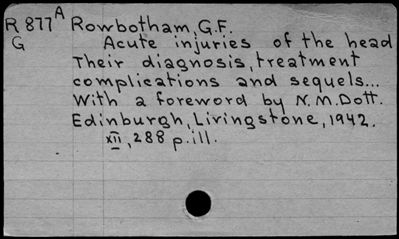 R 877 A Rowbotham, G.F.
G Acute injuries of the head
Their diagnosis, treatment
complications and sequels...
With a foreword by N.M. Dott.
Edinburgh, Livingstone, 1942.
XII, 288 p. ill.